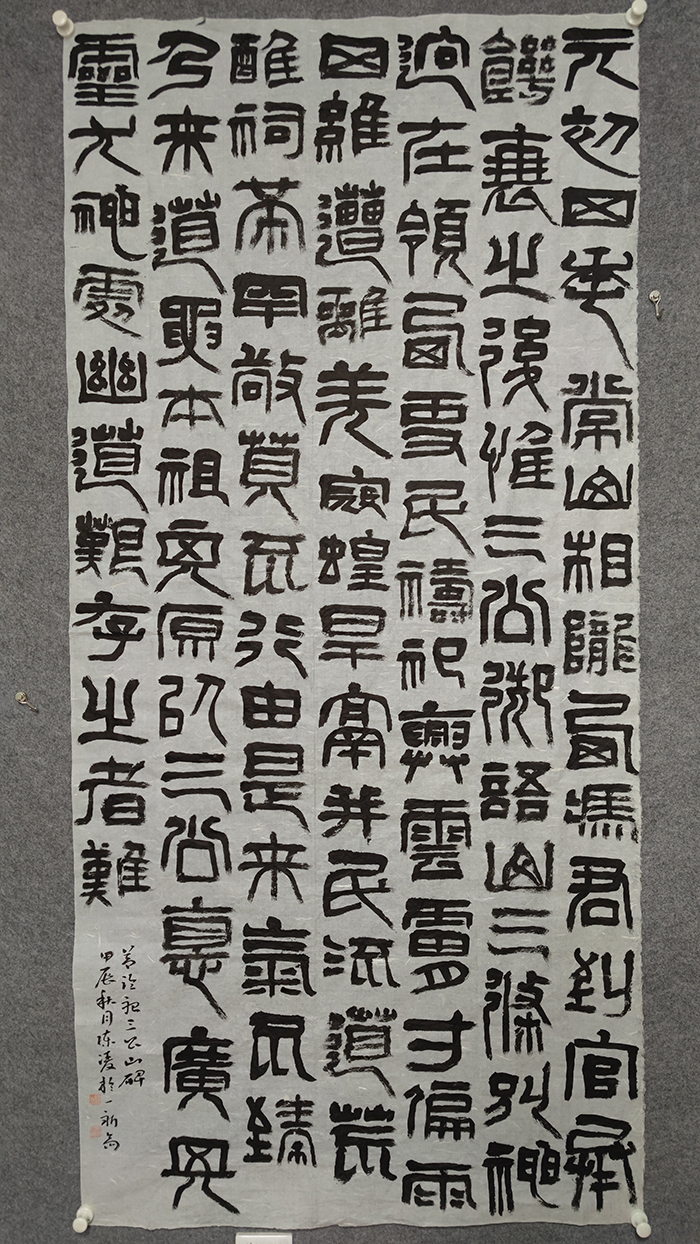 元初四年常山相隴西馮君到官承
饑衰之後惟三公御語山三條別神
迥在領西吏民禱祀興雲膚寸偏雨
四維遭離羌寇蝗旱鬲并民流道荒
醮祠希罕敬奠不行由是来氣不臻
乃来道要本祖其原以三公悳廣其
靈尤神處幽道艱存之者難
臨祀三公山碑
甲辰秋月陳凌於一新斋